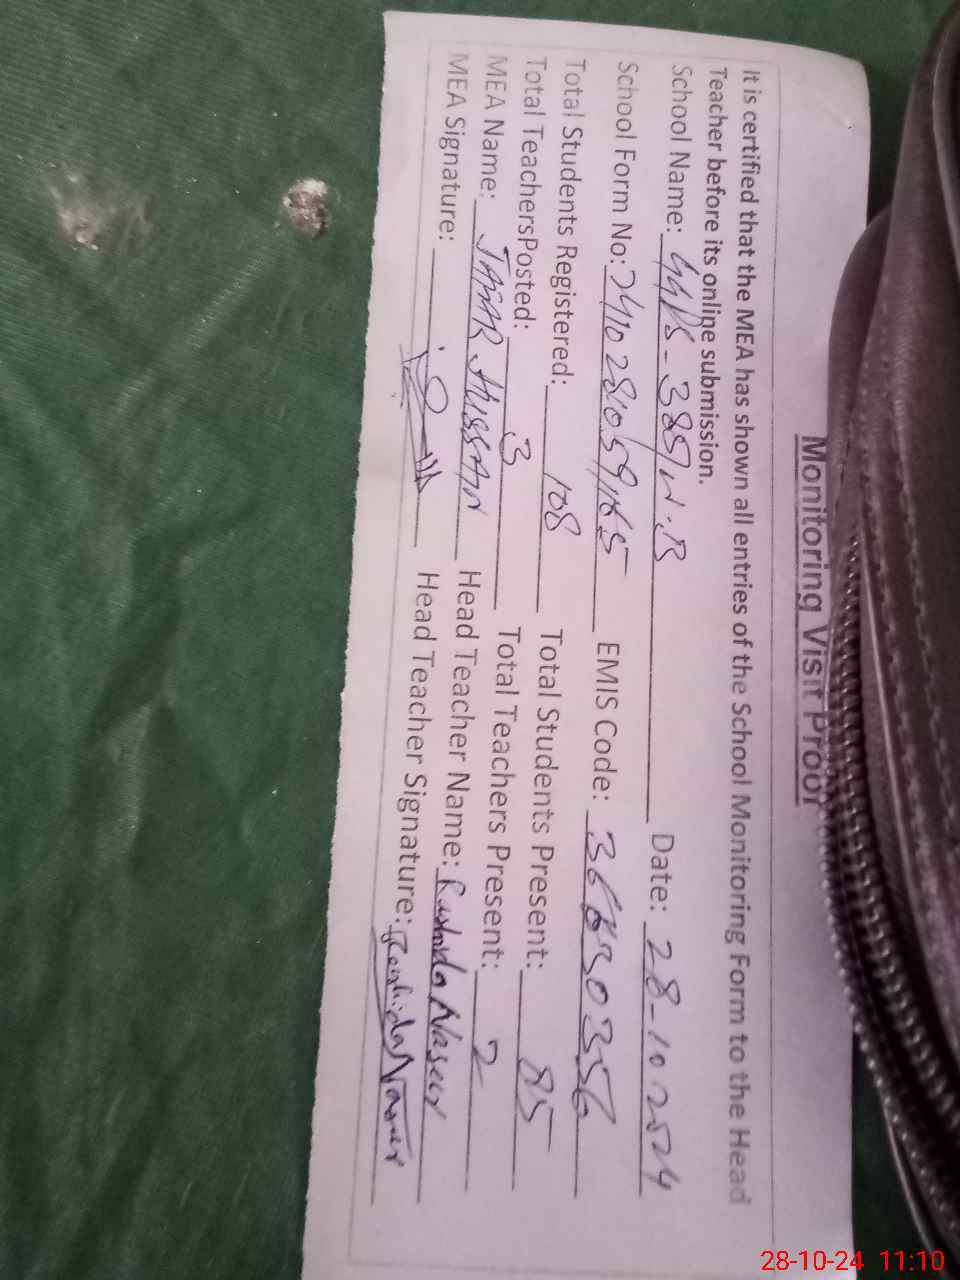 Monitoring Visit Proof
It is certified that the MEA has shown all entries of the School Monitoring Form to the Head
Teacher before its online submission.
School Name: Date: 28-10 2024
School Form No: EMIS Code:
Total Students Registered: 108 Total Students Present: 85
Total TeachersPosted: 3 Total Teachers Present: 2
MEA Name: Head Teacher Name: Rashida
MEA Signature: Head Teacher Signature: Rashida
28-10-24 11:10